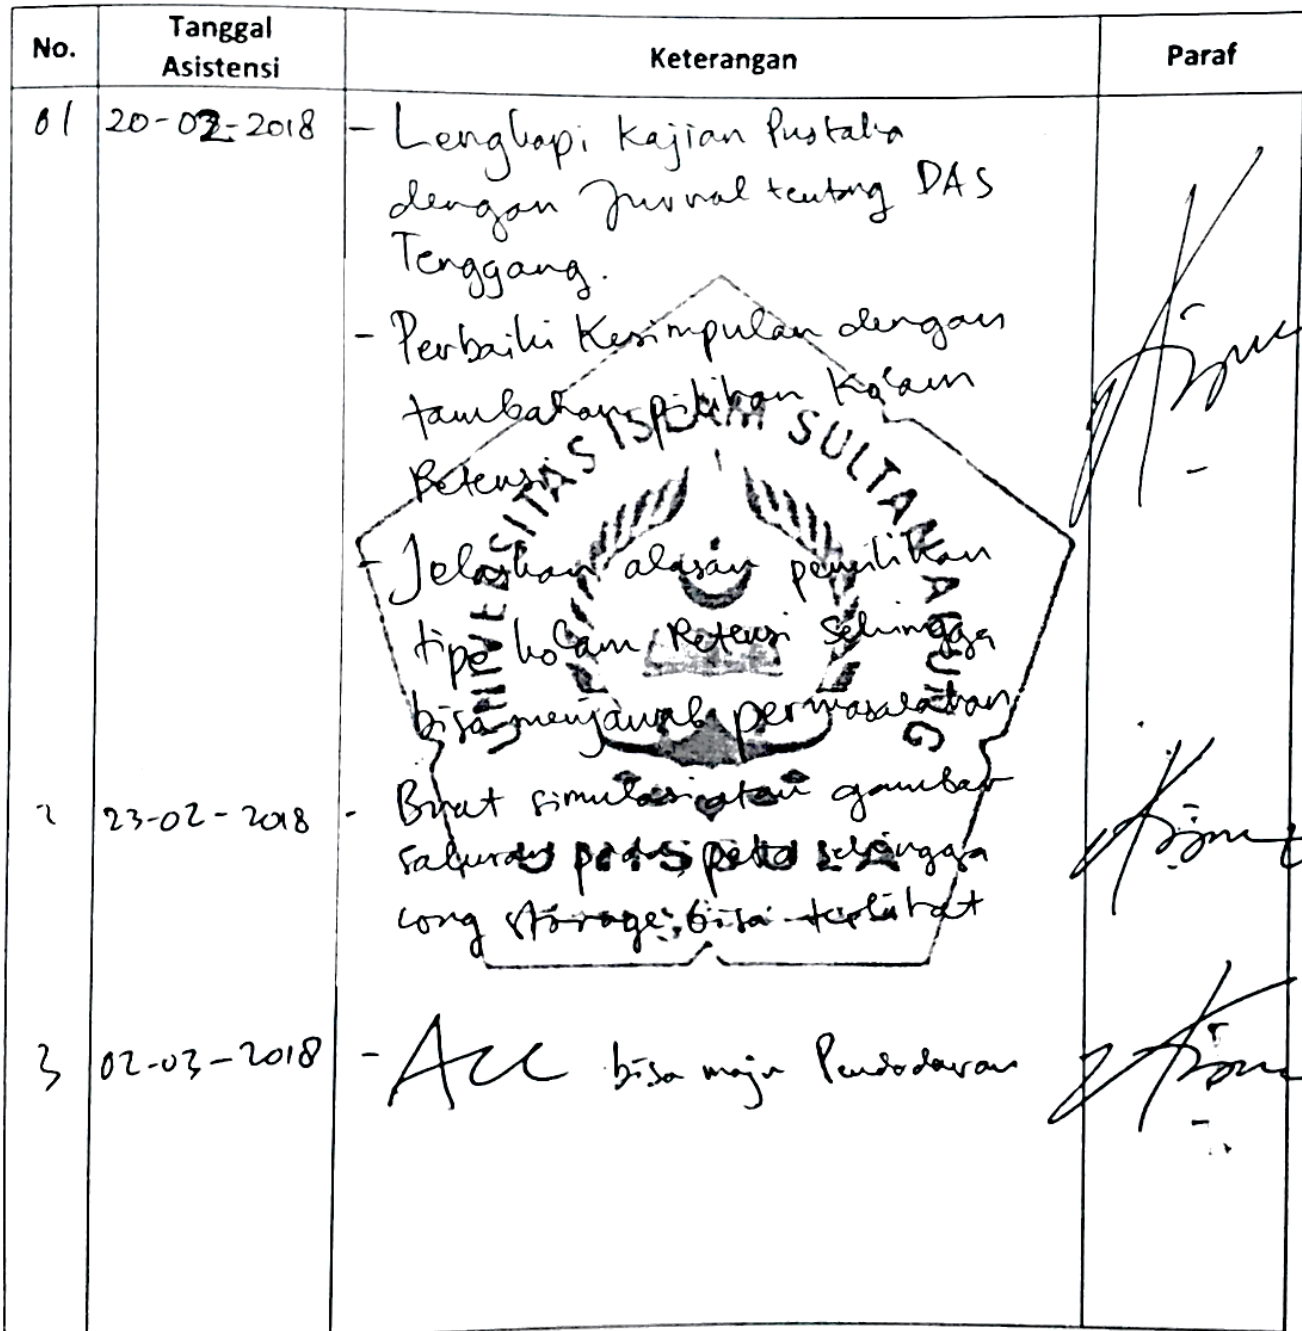 No.
Tanggal
Asistensi
Keterangan
Paraf
01 20-02-2018 - Lengkapi Kajian Pustaka
dengan Jurnal tentang DAS
Tenggang.
- Perbaiki Kesimpulan dengan
tambahan pilihan Kolam
Retensi
- Jelaskan alasan pemilihan
tipe kolam Retensi Sehingga
bisa menjawab permasalahan
2 23-02-2018 - Buat simulasi atau gambar
saluran pada peta sehingga
long storage bisa terlihat
3 02-03-2018 - ACC bisa maju Pendadaran
UNIVERSITAS ISLAM SULTAN AGUNG
UNISSULA